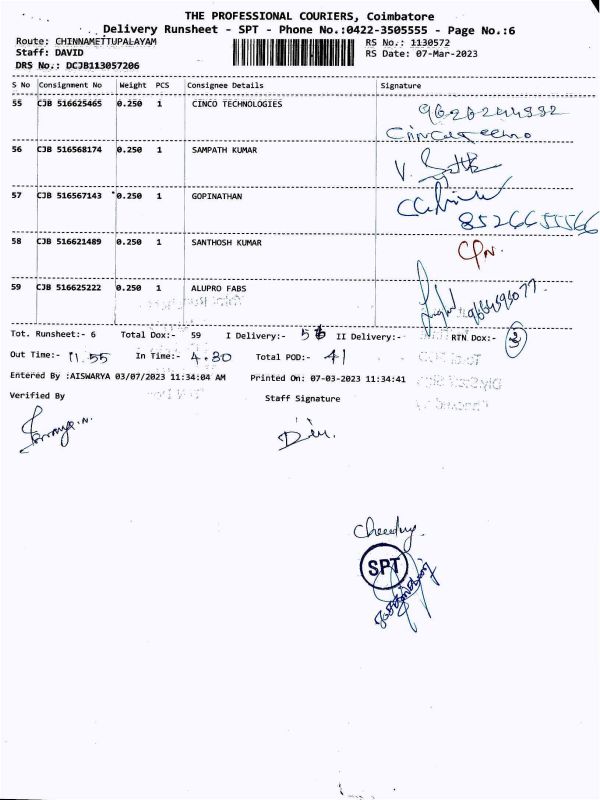 THE PROFESSIONAL COURIERS, Coimbatore
Delivery Runsheet - SPT - Phone No.:0422-3505555 - Page No.:6
Route: CHINNAMETTUPALAYAM RS No.: 1130572
Staff: DAVID RS Date: 07-Mar-2023
DRS No.: DCJB113057206
S No Consignment No Weight PCS Consignee Details Signature
55 CJB 516625465 0.250 1 CINCO TECHNOLOGIES
56 CJB 516568174 0.250 1 SAMPATH KUMAR
57 CJB 516567143 0.250 1 GOPINATHAN
8526655566
58 CJB 516621489 0.250 1 SANTHOSH KUMAR
59 CJB 516625222 0.250 1 ALUPRO FABS
Tot. Runsheet:- 6 Total Dox:- 59 I Delivery:- II Delivery:- RTN Dox:- 3
Out Time:- 11.55 In Time:- 4.30 Total POD:- 41
Entered By :AISWARYA 03/07/2023 11:34:04 AM Printed On: 07-03-2023 11:34:41
Verified By Staff Signature
SPT